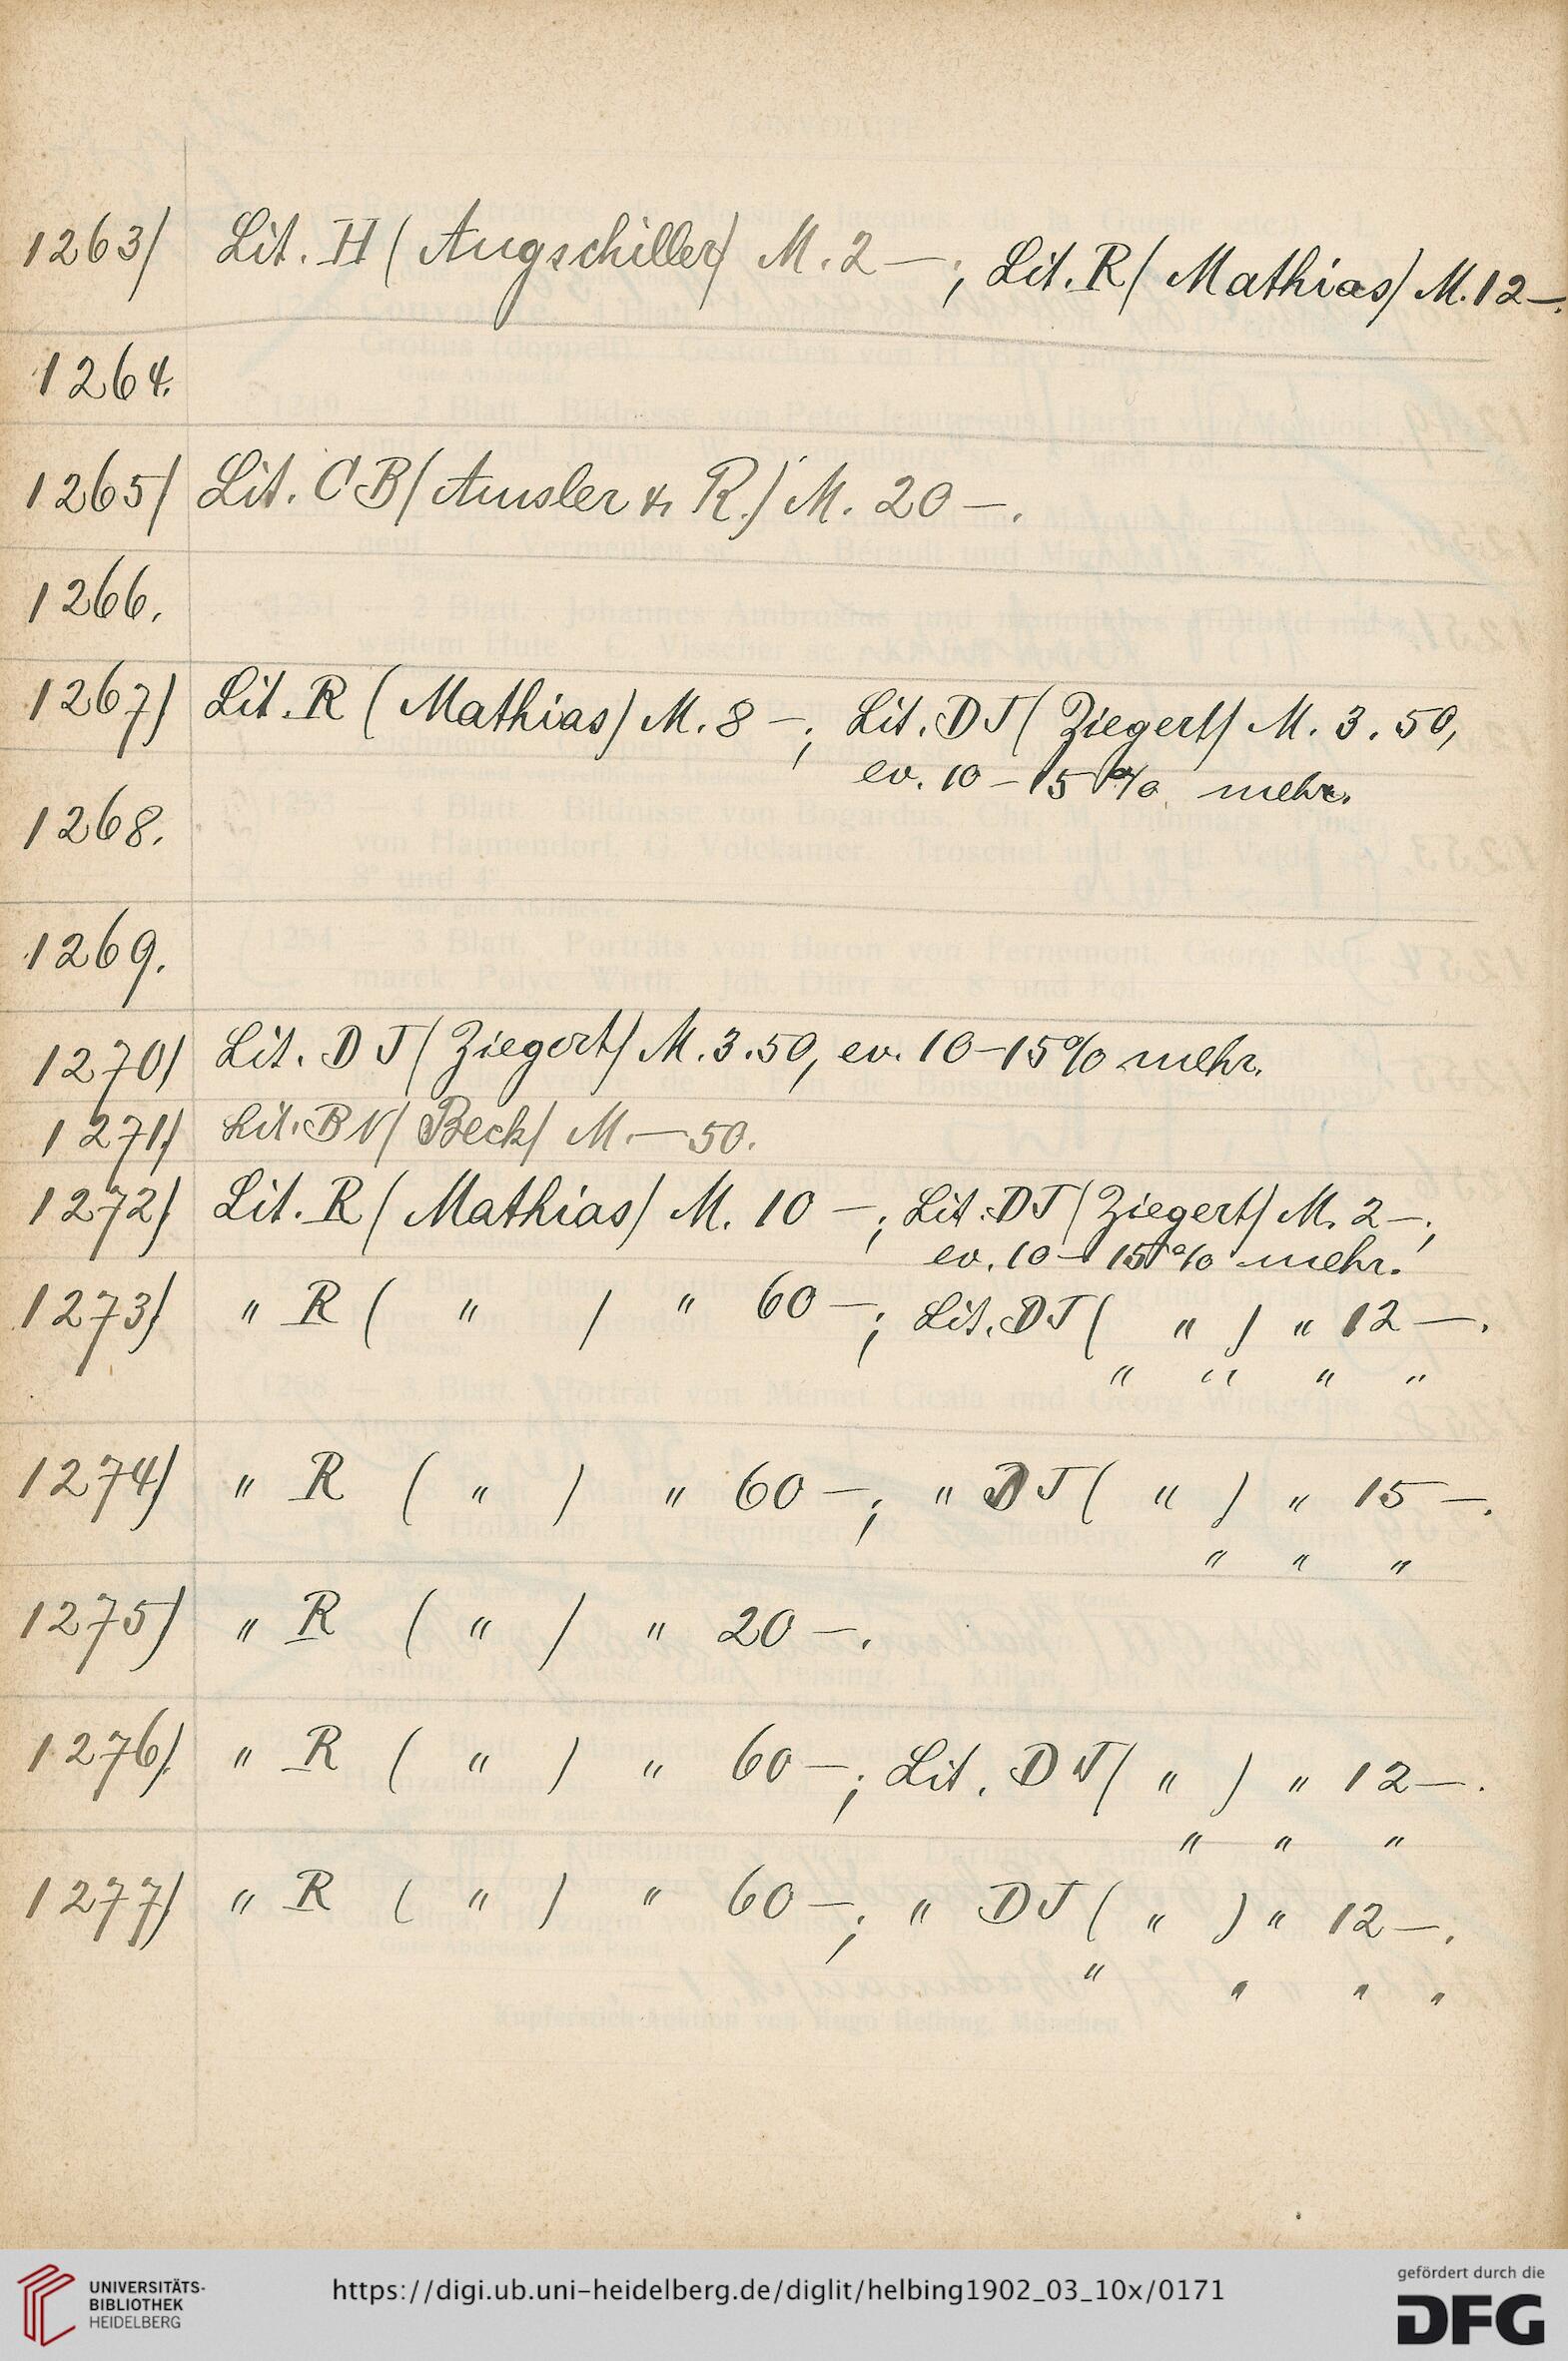 1263) Lit. H (Augschiller) M. 2 —; Lit. R (Mathias) M. 12 —.
1264.
1265) Lit. C B (Amsler & R.) M. 20 —.
1266.
1267) Lit. R (Mathias) M. 8 —; Lit. D J (Ziegert) M. 3.50,
ev. 10 – 15 % mehr.
1268.
1269.
1270) Lit. D J (Ziegert) M. 3.50, ev. 10 – 15 % mehr.
1271) Lit. B N (Beck) M. — 50.
1272) Lit. R (Mathias) M. 10 —; Lit. D J (Ziegert) M. 2 —,
ev. 10 – 15 % mehr.
1273) " R ( " ) " 60 —; Lit. D J ( " ) " 12 —.
" " " "
1274) " R ( " ) " 60 —; " D J ( " ) " 15 —.
" " "
1275) " R ( " ) " 20 —.
1276) " R ( " ) " 60 —; Lit. D J ( " ) " 12 —.
" " "
1277) " R ( " ) " 60 —; " D J ( " ) " 12 —.
" " " "
UNIVERSITÄTS-
BIBLIOTHEK
HEIDELBERG
https://digi.ub.uni-heidelberg.de/diglit/helbing1902_03_10x/0171
gefördert durch die
DFG